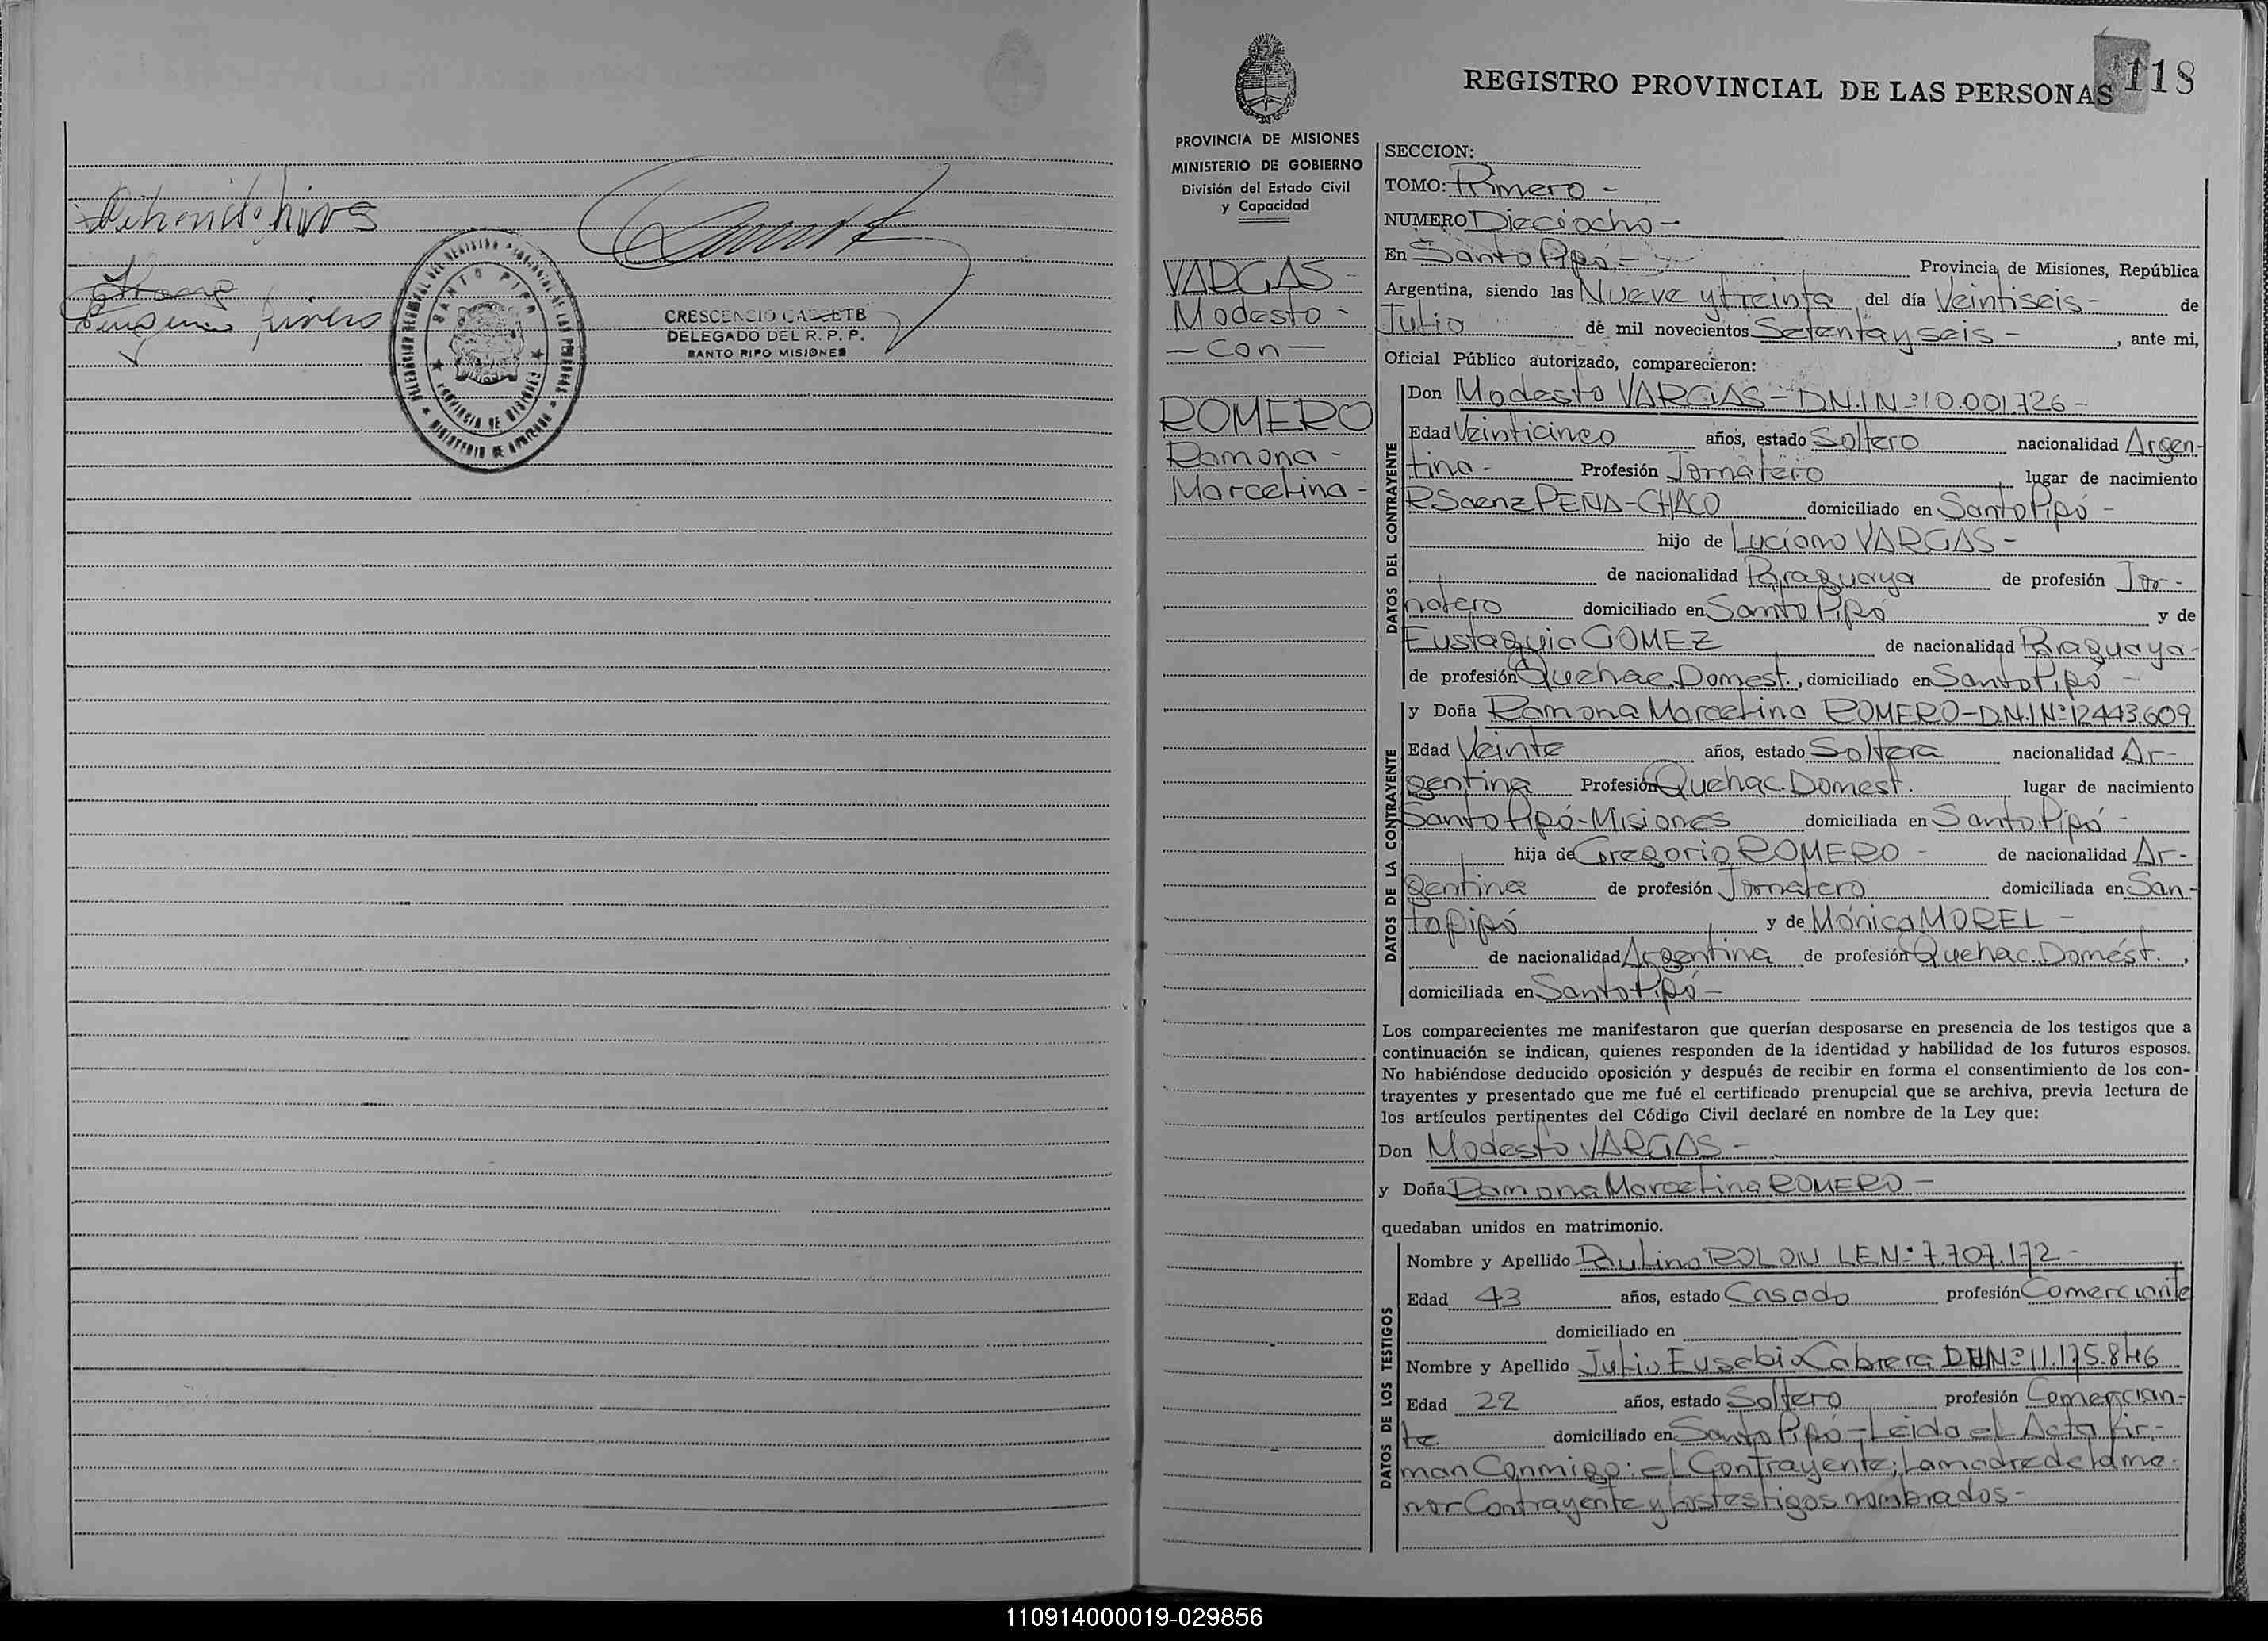 Eugenio Rivero
SANTO PIPO
PROVINCIA DE MISIONES
MINISTERIO DE GOBIERNO
CRESCENCIO
DELEGADO DEL R. P. P.
SANTO PIPO MISIONES
118
REGISTRO PROVINCIAL DE LAS PERSONAS
PROVINCIA DE MISIONES
MINISTERIO DE GOBIERNO
División del Estado Civil
y Capacidad
VARGAS -
Modesto -
- Con -
ROMERO
Ramona -
Marcelina -
SECCION:
TOMO: Primero -
NUMERO Dieciocho -
En Santo Pipó - Provincia de Misiones, República
Argentina, siendo las Nueve y treinta del día Veintiseis - de
Julio de mil novecientos Setenta y seis - , ante mi,
Oficial Público autorizado, comparecieron:
DATOS DEL CONTRAYENTE
Don Modesto VARGAS - D.N.I.Nº 10.001.726 -
Edad Veinticinco años, estado Soltero nacionalidad Argen-
tina - Profesión Jornalero lugar de nacimiento
R Saenz PEÑA - CHACO domiciliado en Santo Pipó -
hijo de Luciano VARGAS -
de nacionalidad Paraguaya de profesión Jor-
nalero domiciliado en Santo Pipó y de
Eustaquia GOMEZ de nacionalidad Paraguaya -
de profesión Quehac. Domest. , domiciliado en Santo Pipó -
DATOS DE LA CONTRAYENTE
y Doña Ramona Marcelina ROMERO - D.N.I Nº 12443.609
Edad Veinte años, estado Soltera nacionalidad Ar-
gentina Profesión Quehac. Domest. lugar de nacimiento
Santo Pipó - Misiones domiciliada en Santo Pipó -
hija de Gregorio ROMERO - de nacionalidad Ar-
gentina de profesión Jornalero domiciliada en San-
to Pipó y de Mónica MOREL -
de nacionalidad Argentina de profesión Quehac. Domést. ,
domiciliada en Santo Pipó -
Los comparecientes me manifestaron que querían desposarse en presencia de los testigos que a
continuación se indican, quienes responden de la identidad y habilidad de los futuros esposos.
No habiéndose deducido oposición y después de recibir en forma el consentimiento de los con-
trayentes y presentado que me fué el certificado prenupcial que se archiva, previa lectura de
los artículos pertinentes del Código Civil declaré en nombre de la Ley que:
Don Modesto VARGAS -
y Doña Ramona Marcelina ROMERO -
quedaban unidos en matrimonio.
DATOS DE LOS TESTIGOS
Nombre y Apellido Paulino ROLON L.E.Nº 7.707.172 -
Edad 43 años, estado Casado profesión Comerciante
domiciliado en
Nombre y Apellido Julio Eusebio Cabrera DNI Nº 11.175.846
Edad 22 años, estado Soltero profesión Comercian-
te domiciliado en Santo Pipó - Leida el Acta fir-
man Conmigo: el Contrayente; La madre de la me-
nor Contrayente y los testigos nombrados -
110914000019-029856